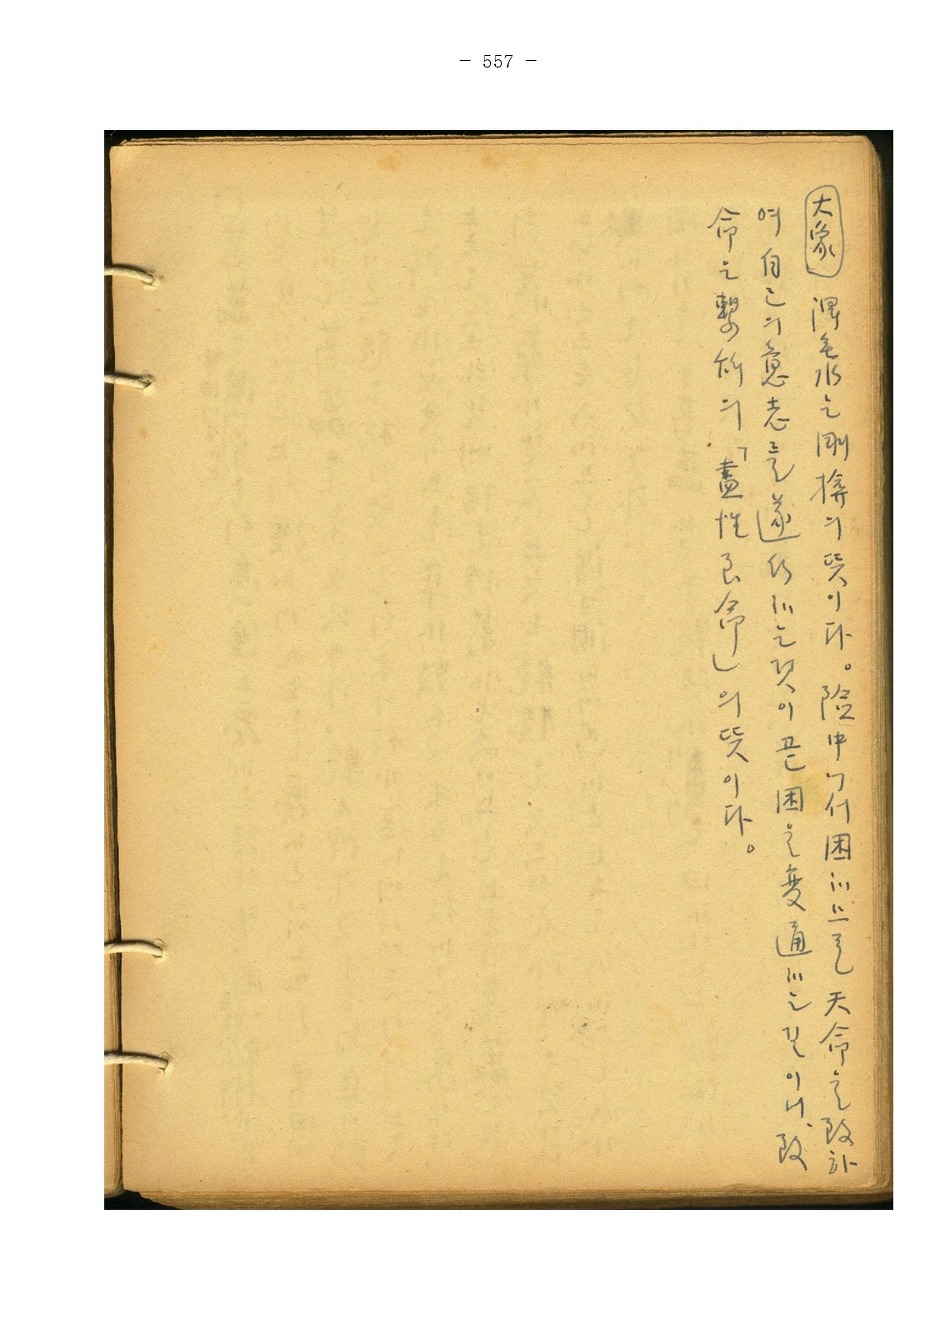 - 557 -
大象 澤无水는 剛揜의 뜻이다。險中에서 困하므로 天命을 致하
여 自己의 意志를 遂行하는 것이 곧 困을 変通하는 길이니, 致
命은 繫辭의 「盡性至命」의 뜻이다。